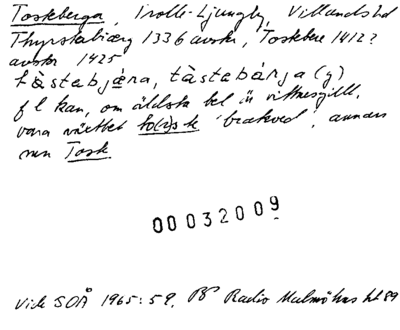 Toskeberga, Trolle-Ljungby, Villands hd
Thyrskabiærg 1336 avskr, Toskebere 1412?
avskr 1425
tàstabjæra, tàstabárja (y)
f l kan, om äldsta bel är vittnesgill,
vara växtbet to(r)sk 'brakved', annars
mn Tosk.
00032009
Vide SOÅ 1965:59, PB Radio Malmöhus ht 89